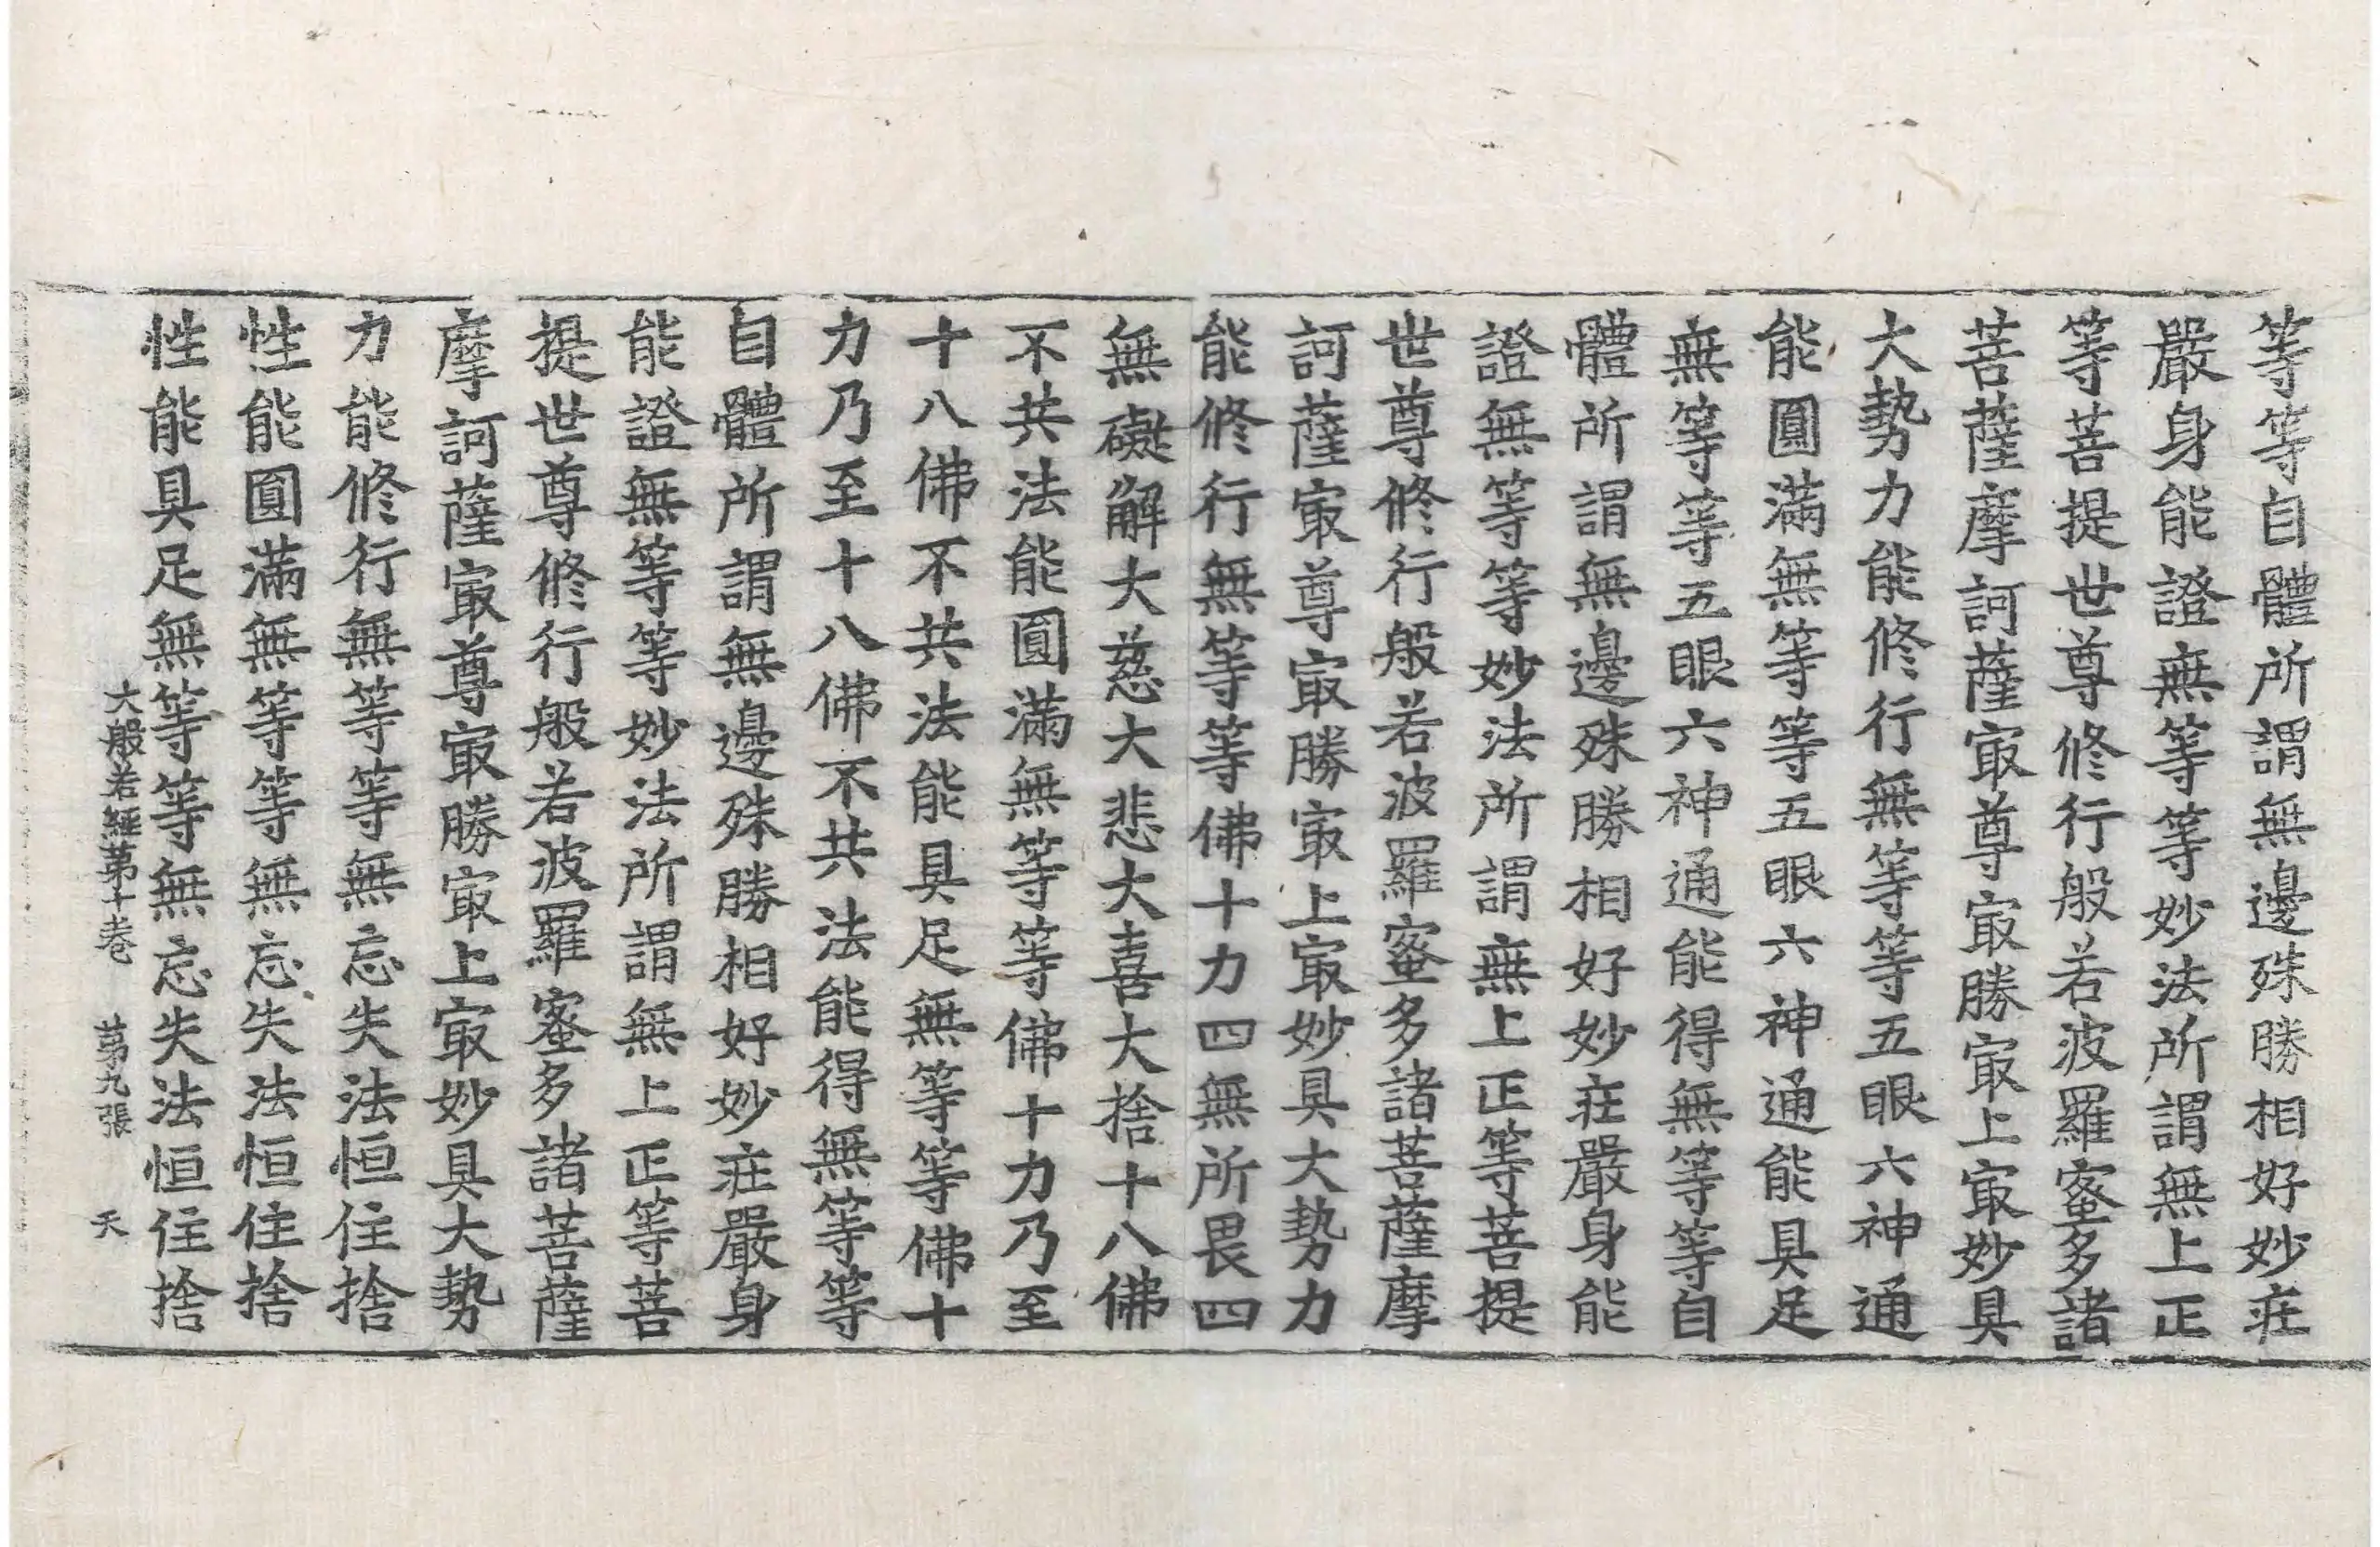 等等自體所謂無邊殊勝相好妙莊
嚴身能證無等等妙法所謂無上正
等菩提世尊修行般若波羅蜜多諸
菩薩摩訶薩㝡尊㝡勝㝡上㝡妙具
大勢力能修行無等等五眼六神通
能圓滿無等等五眼六神通能具足
無等等五眼六神通能得無等等自
體所謂無邊殊勝相好妙莊嚴身能
證無等等妙法所謂無上正等菩提
世尊修行般若波羅蜜多諸菩薩摩
訶薩㝡尊㝡勝㝡上㝡妙具大勢力
能修行無等等佛十力四無所畏四
無礙解大慈大悲大喜大捨十八佛
不共法能圓滿無等等佛十力乃至
十八佛不共法能具足無等等佛十
力乃至十八佛不共法能得無等等
自體所謂無邊殊勝相好妙莊嚴身
能證無等等妙法所謂無上正等菩
提世尊修行般若波羅蜜多諸菩薩
摩訶薩㝡尊㝡勝㝡上㝡妙具大勢
力能修行無等等無忘失法恒住捨
性能圓滿無等等無忘失法恒住捨
性能具足無等等無忘失法恒住捨
大般若經第十卷 第九張 天